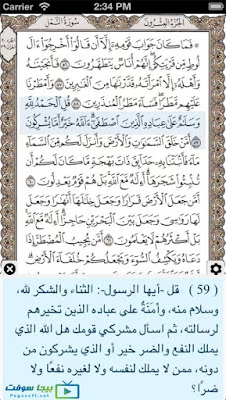 Carrier 2:34 PM
سُورَةُ النَّمْلِ الجُزْءُ العِشْرُونَ
۞ فَمَا كَانَ جَوَابَ قَوْمِهِۦٓ إِلَّآ أَن قَالُوٓا۟ أَخْرِجُوٓا۟ ءَالَ
لُوطٍ مِّن قَرْيَتِكُمْ إِنَّهُمْ أُنَاسٌ يَتَطَهَّرُونَ ٥٦ فَأَنجَيْنَٰهُ
وَأَهْلَهُۥٓ إِلَّا ٱمْرَأَتَهُۥ قَدَّرْنَٰهَا مِنَ ٱلْغَٰبِرِينَ ٥٧ وَأَمْطَرْنَا
عَلَيْهِم مَّطَرًا فَسَآءَ مَطَرُ ٱلْمُنذَرِينَ ٥٨ قُلِ ٱلْحَمْدُ لِلَّهِ
وَسَلَٰمٌ عَلَىٰ عِبَادِهِ ٱلَّذِينَ ٱصْطَفَىٰٓ ءَآللَّهُ خَيْرٌ أَمَّا يُشْرِكُونَ ٥٩
أَمَّنْ خَلَقَ ٱلسَّمَٰوَٰتِ وَٱلْأَرْضَ وَأَنزَلَ لَكُم مِّنَ ٱلسَّمَآءِ
مَآءً فَأَنۢبَتْنَا بِهِۦ حَدَآئِقَ ذَاتَ بَهْجَةٍ مَّا كَانَ لَكُمْ أَن
تُنۢبِتُوا۟ شَجَرَهَآ أَءِلَٰهٌ مَّعَ ٱللَّهِ بَلْ هُمْ قَوْمٌ يَعْدِلُونَ ٦٠
أَمَّن جَعَلَ ٱلْأَرْضَ قَرَارًا وَجَعَلَ خِلَٰلَهَآ أَنْهَٰرًا وَجَعَلَ
لَهَا رَوَٰسِىَ وَجَعَلَ بَيْنَ ٱلْبَحْرَيْنِ حَاجِزًا أَءِلَٰهٌ مَّعَ ٱللَّهِ
بَلْ أَكْثَرُهُمْ لَا يَعْلَمُونَ ٦١ أَمَّن يُجِيبُ ٱلْمُضْطَرَّ إِذَا
دَعَاهُ وَيَكْشِفُ ٱلسُّوٓءَ وَيَجْعَلُكُمْ خُلَفَآءَ ٱلْأَرْضِ
( 59 ) قل -أيها الرسول-: الثناء والشكر لله،
وسلام منه، وأمَنَةٌ على عباده الذين تخيرهم
لرسالته، ثم اسأل مشركي قومك هل الله الذي
يملك النفع والضر خير أو الذي يشركون من
دونه، ممن لا يملك لنفسه ولا لغيره نفعًا ولا
ضرًا؟
بيجا سوفت
Pegasoft.net